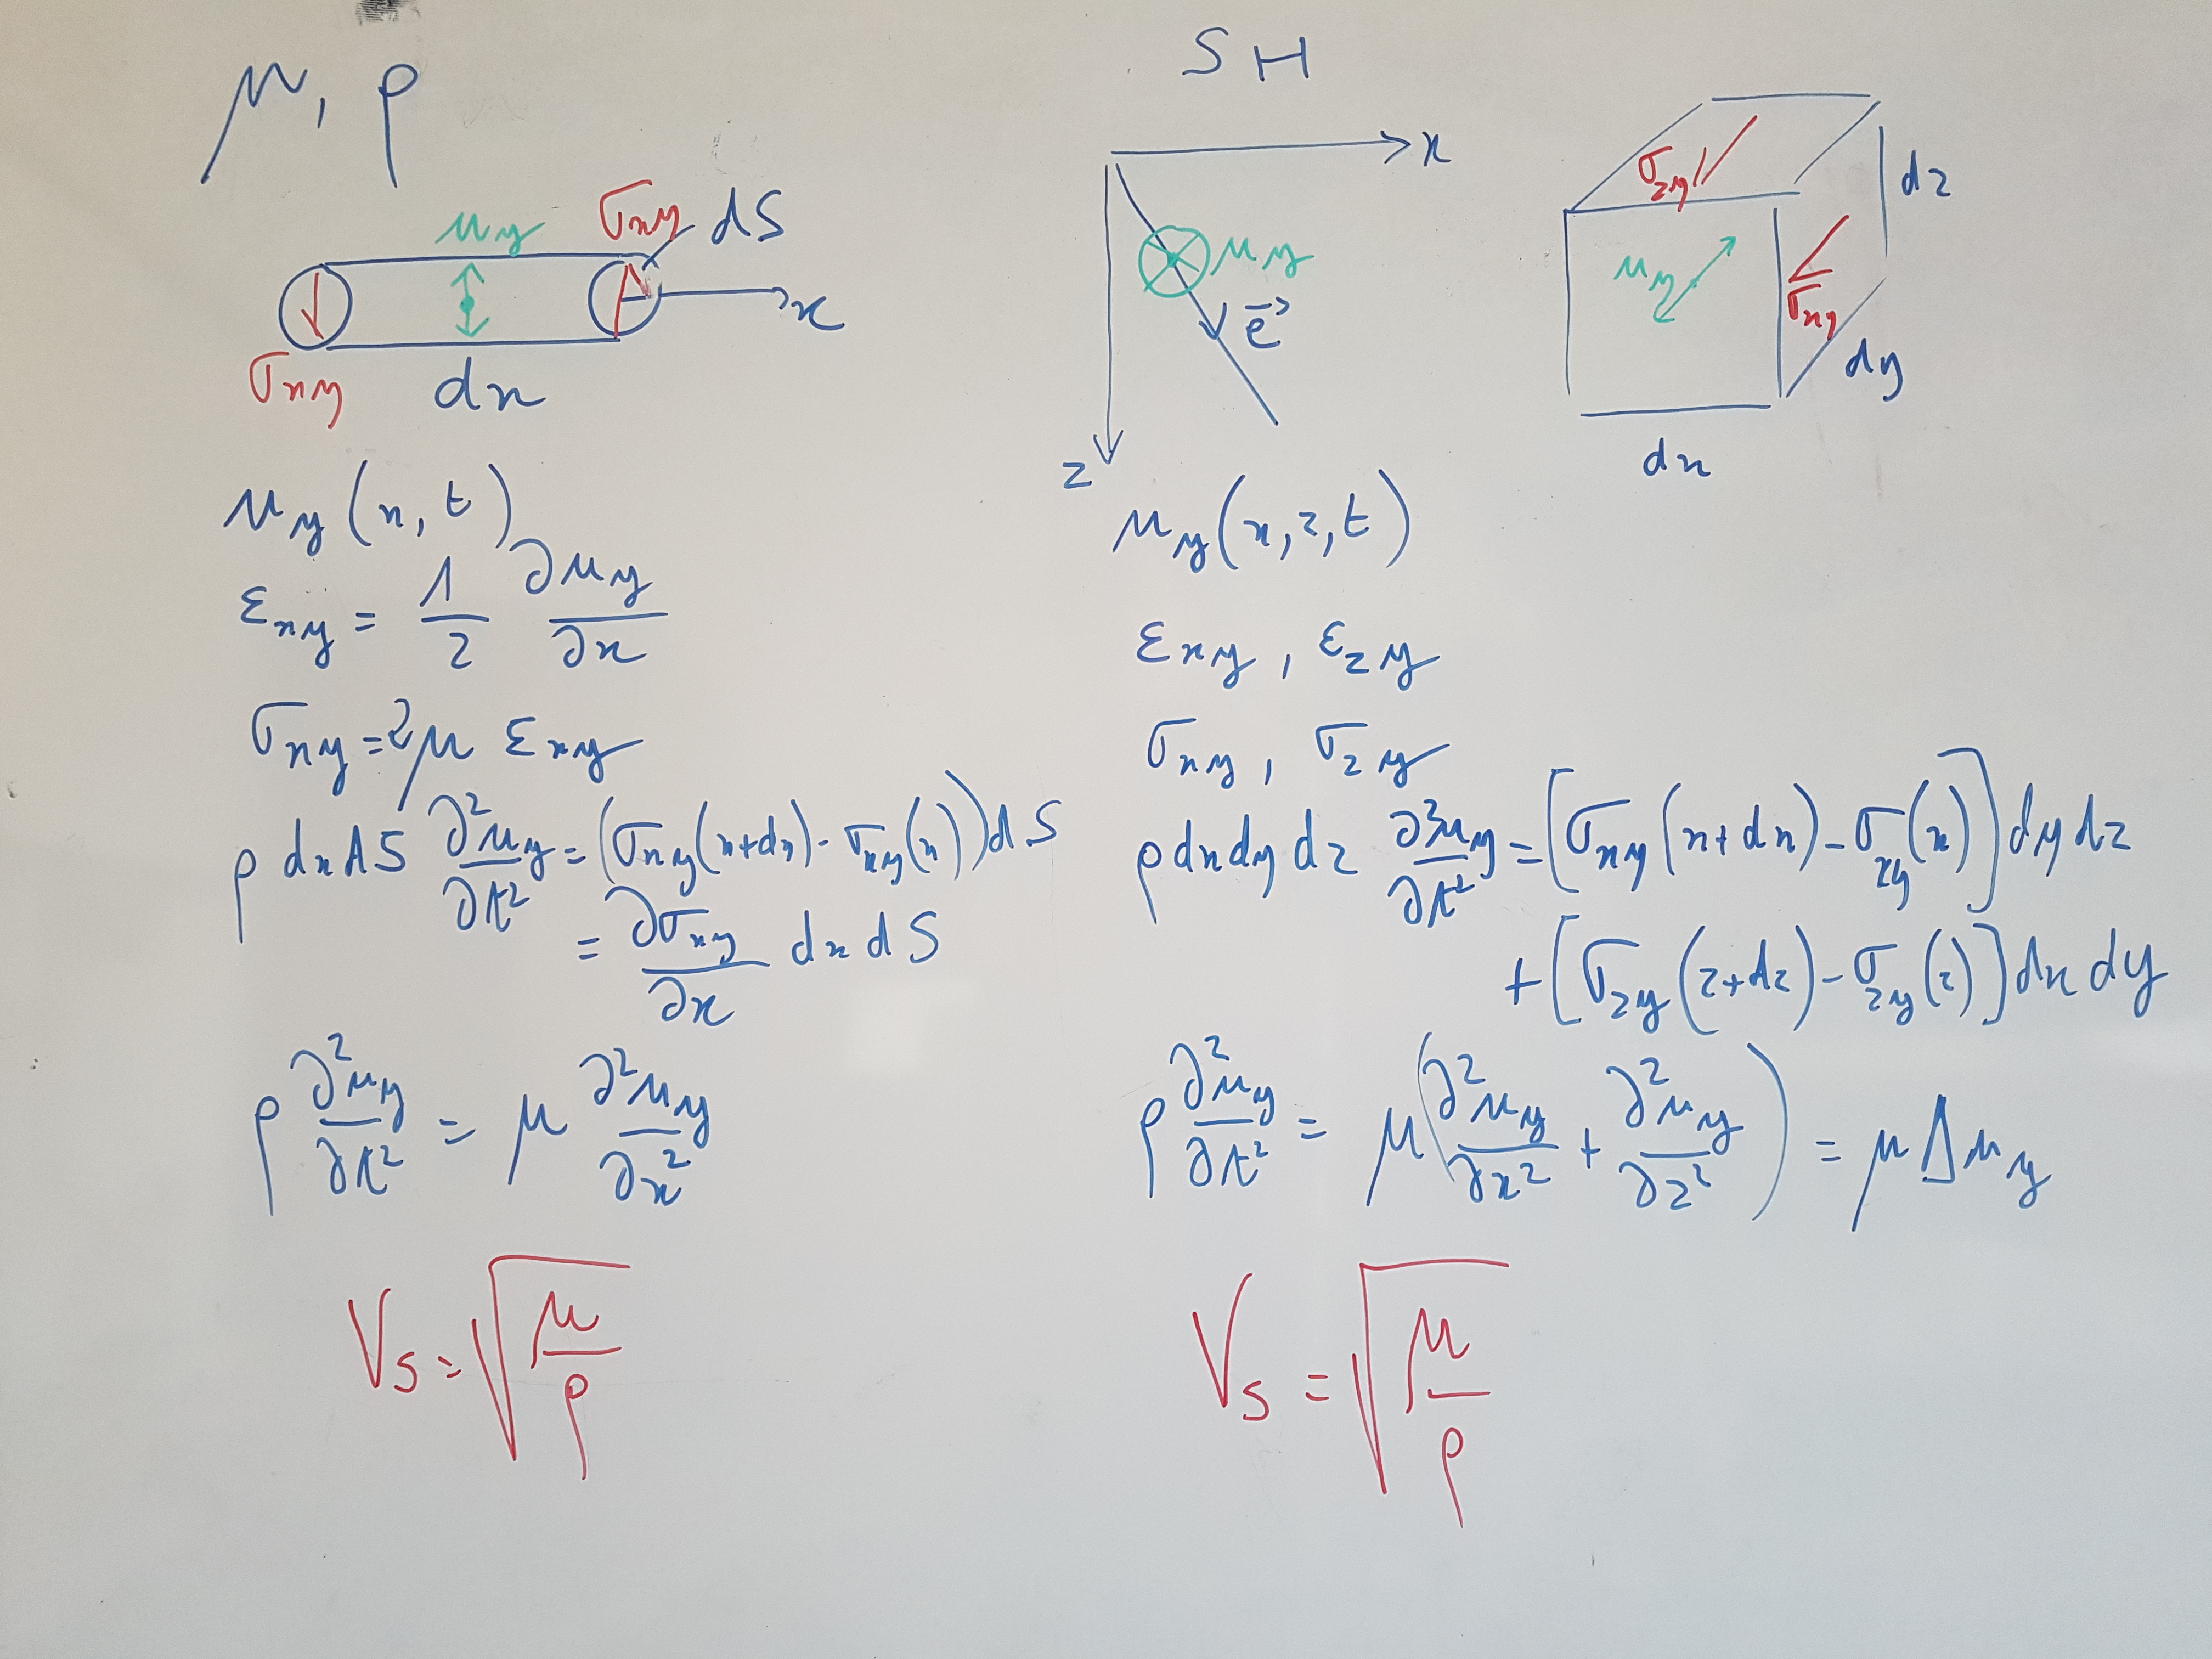 μ, ρ
σxy dS
uy
x
σxy
dx
uy(x, t)
εxy = 1/2 ∂uy/∂x
σxy = 2μ εxy
ρ dx dS ∂²uy/∂t² = (σxy(x+dx) - σxy(x)) dS
= ∂σxy/∂x dx dS
ρ ∂²uy/∂t² = μ ∂²uy/∂x²
Vs = √(μ/ρ)
SH
x
uy
e⃗
z
σzy
dz
uy
σxy
dy
dx
uy(x, z, t)
εxy, εzy
σxy, σzy
ρ dx dy dz ∂²uy/∂t² = [σxy(x+dx) - σxy(x)] dy dz
+ [σzy(z+dz) - σzy(z)] dx dy
ρ ∂²uy/∂t² = μ(∂²uy/∂x² + ∂²uy/∂z²) = μ Δuy
Vs = √(μ/ρ)